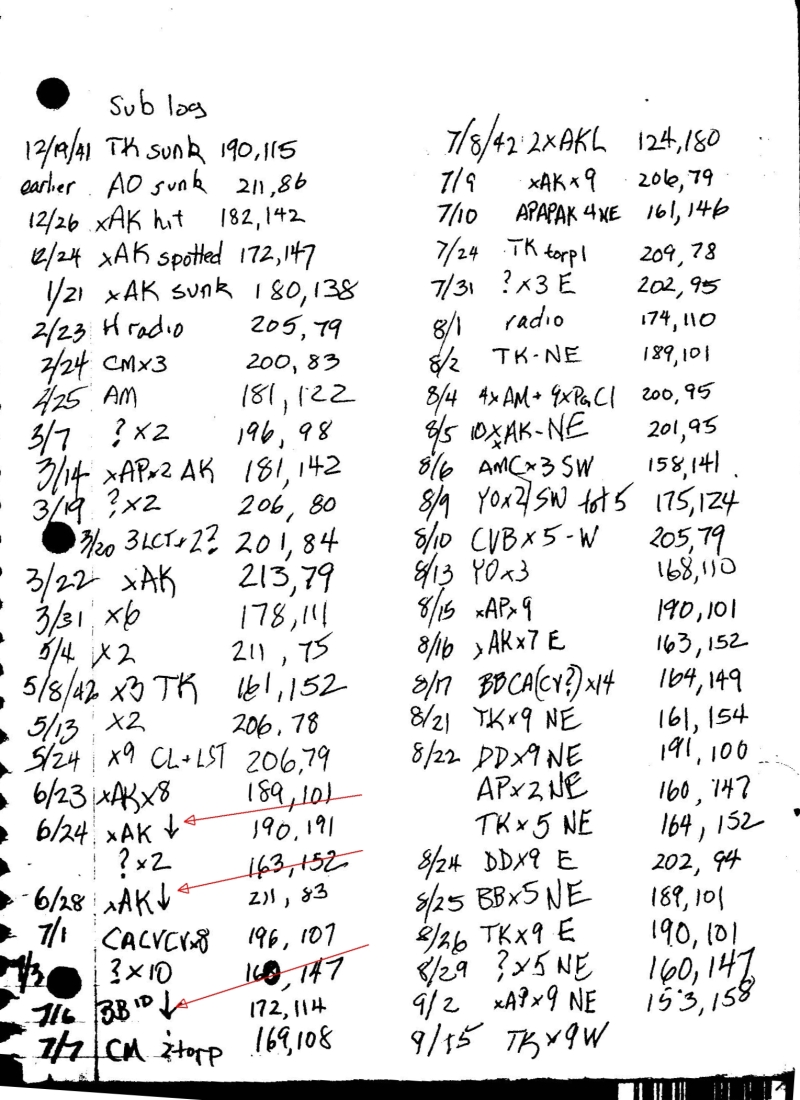 Sub log
12/19/41 TK sunk 190,115
earlier AO sunk 211,86
12/26 xAK hit 182,142
12/24 xAK spotted 172,147
1/21 xAK sunk 180,138
2/23 H radio 205,79
2/24 CMx3 200,83
2/25 AM 181,122
3/7 ?x2 196,98
3/14 xAPx2 AK 181,142
3/19 ?x2 206,80
3/20 3LCT+2? 201,84
3/22 xAK 213,79
3/31 x6 178,111
5/4 x2 211,75
5/8/42 x3 TK 161,152
5/13 x2 206,78
5/24 x9 CL+LST 206,79
6/23 xAKx8 189,101
6/24 xAK ↓ 190,191
?x2 163,152
6/28 xAK↓ 211,83
7/1 CACVCVx8 196,107
7/3 ?x10 160,147
7/6 BB ↓ 172,114
7/7 CM 2torp 169,108
7/8/42 2xAKL 124,180
7/9 xAKx9 206,79
7/10 APAPAK 4NE 161,146
7/24 TK torp1 209,78
7/31 ?x3 E 202,95
8/1 radio 174,110
8/2 TK-NE 189,101
8/4 4xAM+ 9xPaCl 200,95
8/5 10xAK-NE 201,95
8/6 AMCx3 SW 158,141
8/9 YOx2/SW tot 5 175,124
8/10 CVBx5-W 205,79
8/13 YOx3 168,110
8/15 xAPx9 190,101
8/16 xAKx7 E 163,152
8/17 BBCA(CV?)x14 164,149
8/21 TKx9 NE 161,154
8/22 DDx9 NE 191,100
APx2NE 160,147
TKx5 NE 164,152
8/24 DDx9 E 202,94
8/25 BBx5NE 189,101
8/26 TKx9 E 190,101
8/29 ?x5 NE 160,147
9/2 xAPx9 NE 153,158
9/15 TKx9W